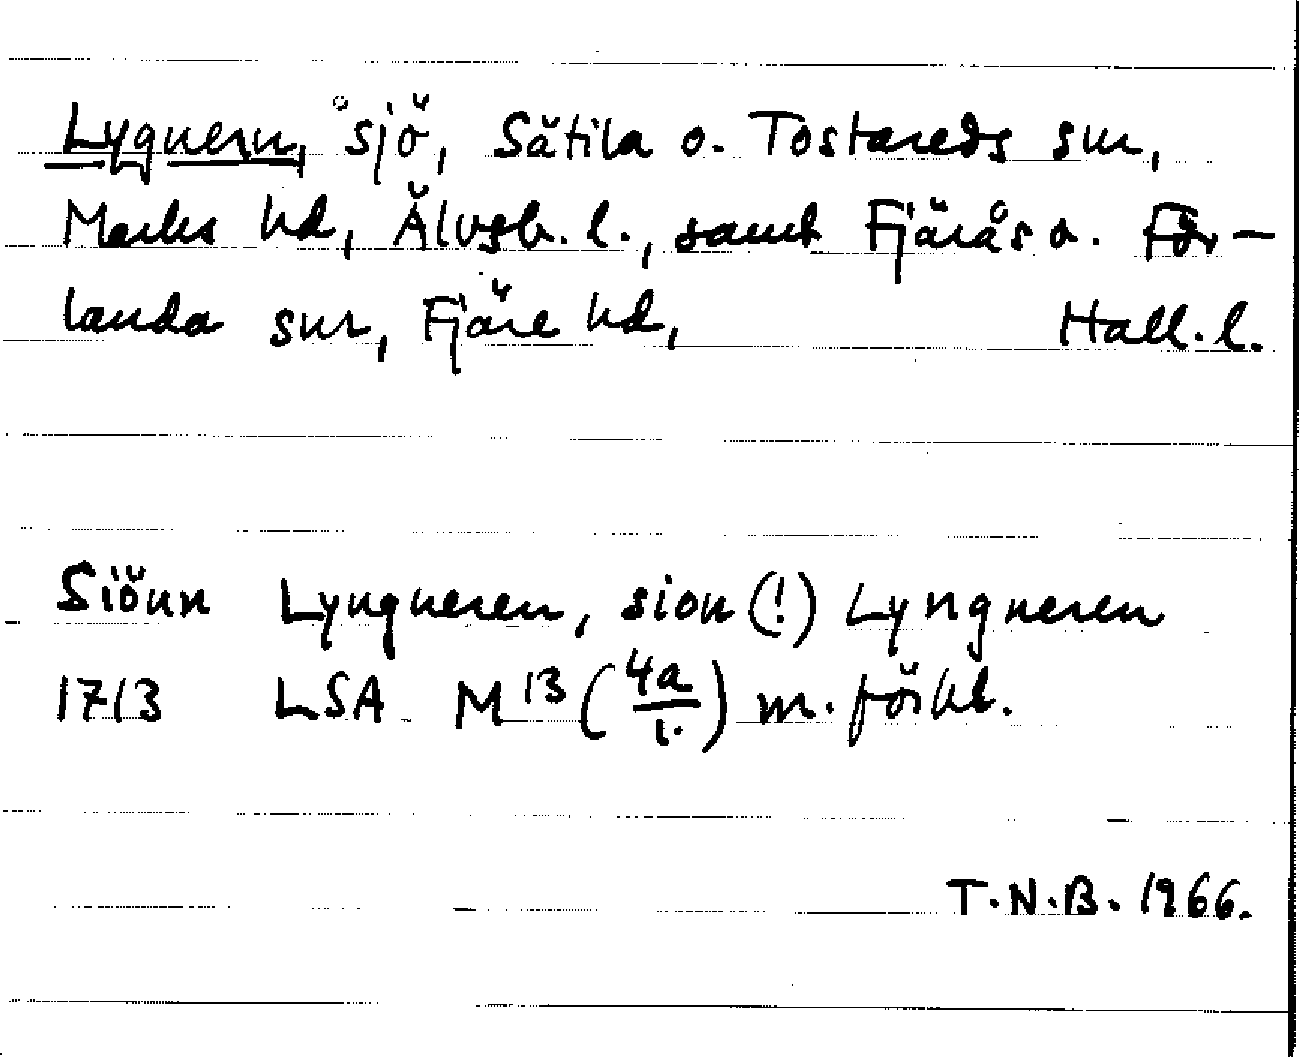 Lygnern, °sjö, Sätila o. Tostareds snr,
Marks hd, Älvsb. l., samt Fjärås o. För-
landa snr, Fjäre hd, Hall. l.
Siönn Lyngneren, sion (!) Lyngneren
1713 LSA M 13 (4a/1.) m. förkl.
T.N.B. 1966.